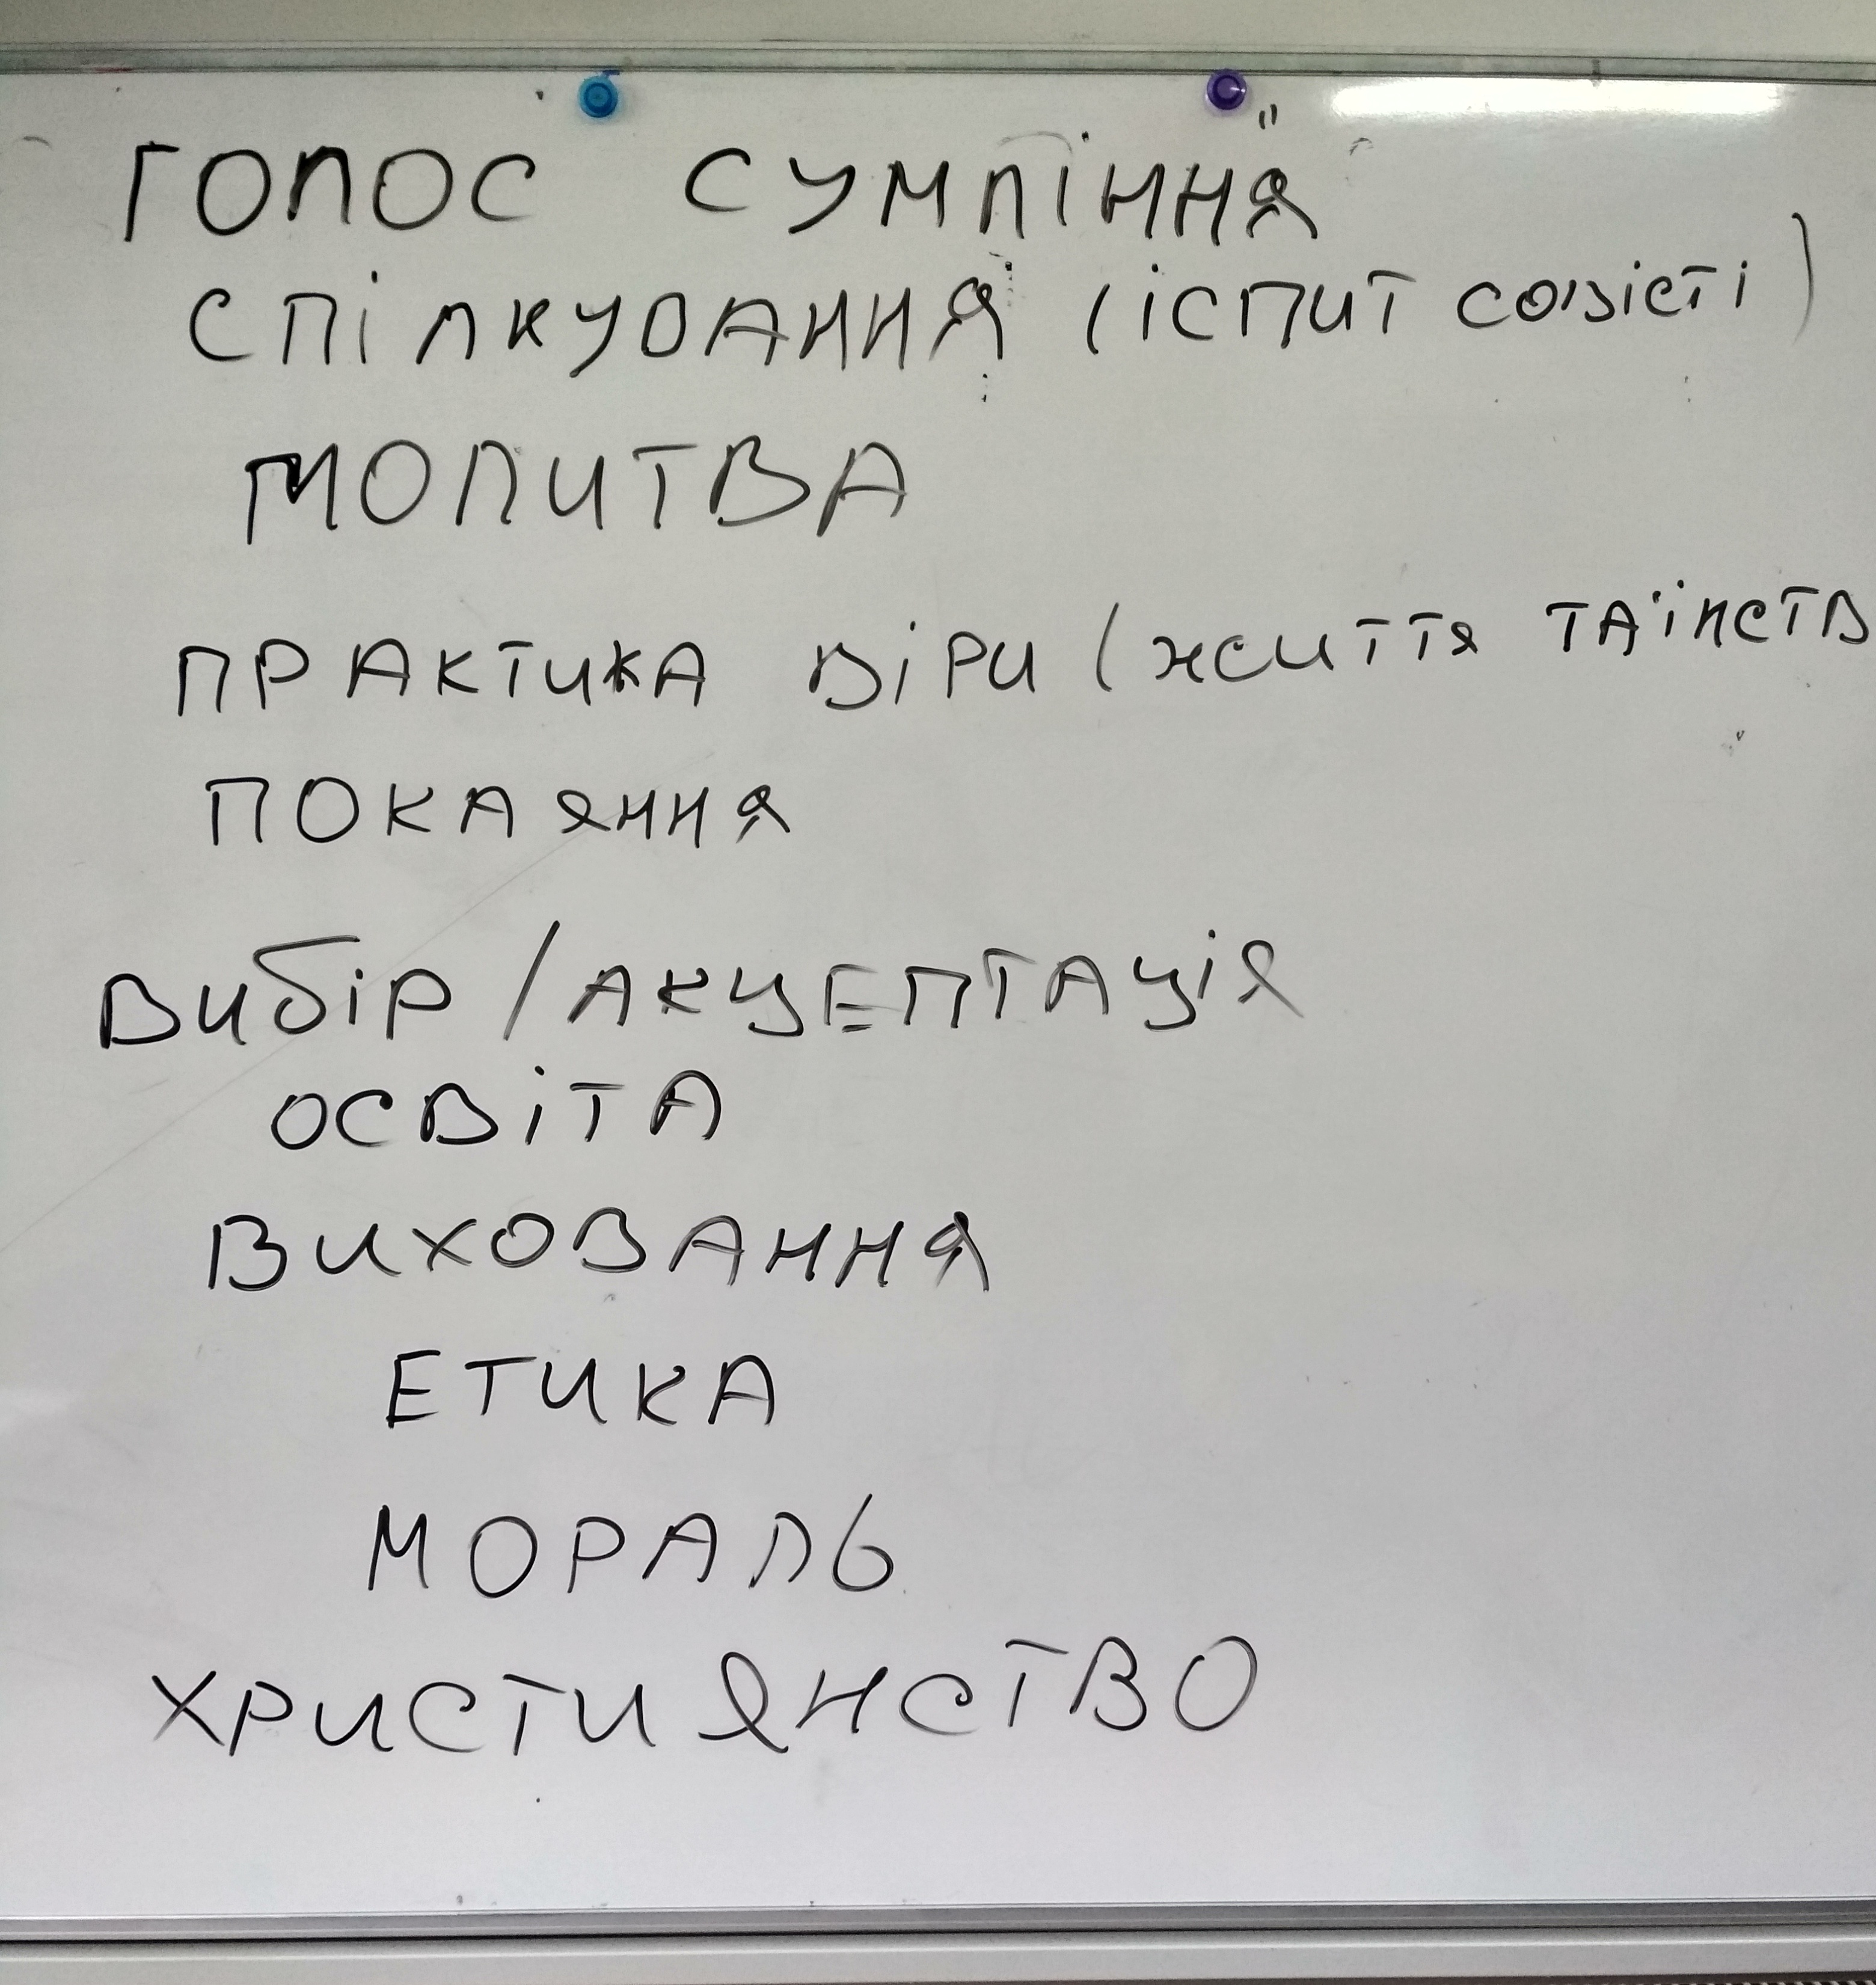 ГОЛОС СУМЛІННЯ"
СПІЛКУВАННЯ (ІСПИТ СОВІСТІ)
МОЛИТВА
ПРАКТИКА ВІРИ (ЖИТТЯ ТАЇНСТВ
ПОКАЯННЯ
ВИБІР / АКЦЕПТАЦІЯ
ОСВІТА
ВИХОВАННЯ
ЕТИКА
МОРАЛЬ
ХРИСТИЯНСТВО